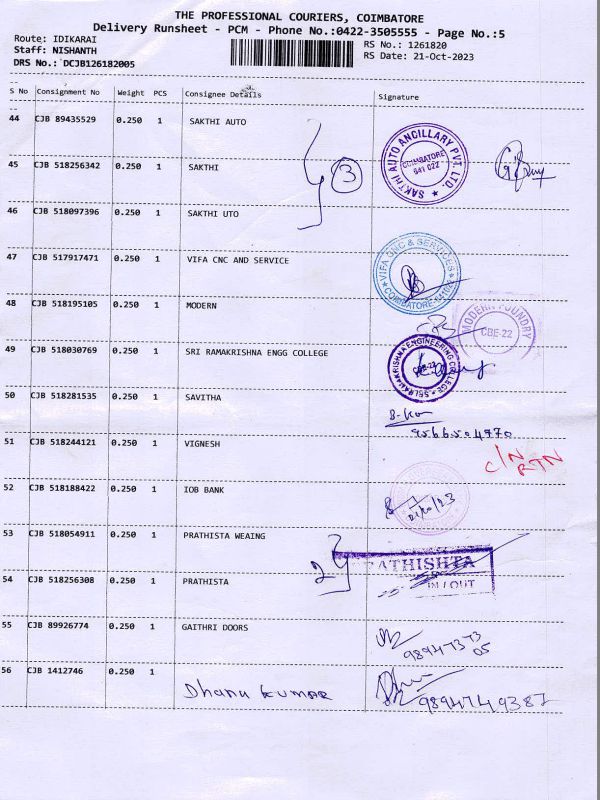 THE PROFESSIONAL COURIERS, COIMBATORE
Delivery Runsheet - PCM - Phone No.:0422-3505555 - Page No.:5
Route: IDIKARAI
Staff: NISHANTH
DRS No.: DCJB126182005
RS No.: 1261820
RS Date: 21-Oct-2023
S No Consignment No Weight PCS Consignee Details Signature
44 CJB 89435529 0.250 1 SAKTHI AUTO
SAKTHI AUTO ANCILLARY PVT. LTD.
COIMBATORE
641 022
45 CJB 518256342 0.250 1 SAKTHI
3
46 CJB 518097396 0.250 1 SAKTHI UTO
47 CJB 517917471 0.250 1 VIFA CNC AND SERVICE
VIFA CNC & SERVICES
48 CJB 518195105 0.250 1 MODERN
MODERN FOUNDRY
CBE-22
49 CJB 518030769 0.250 1 SRI RAMAKRISHNA ENGG COLLEGE
50 CJB 518281535 0.250 1 SAVITHA
9566504770
51 CJB 518244121 0.250 1 VIGNESH
C/N
RTN
52 CJB 518188422 0.250 1 IOB BANK
21/10/23
53 CJB 518054911 0.250 1 PRATHISTA WEAING
2
ATHISHTA
IN / OUT
54 CJB 518256308 0.250 1 PRATHISTA
55 CJB 89926774 0.250 1 GAITHRI DOORS
98947373
05
56 CJB 1412746 0.250 1
Dhanu kumar
9894749387